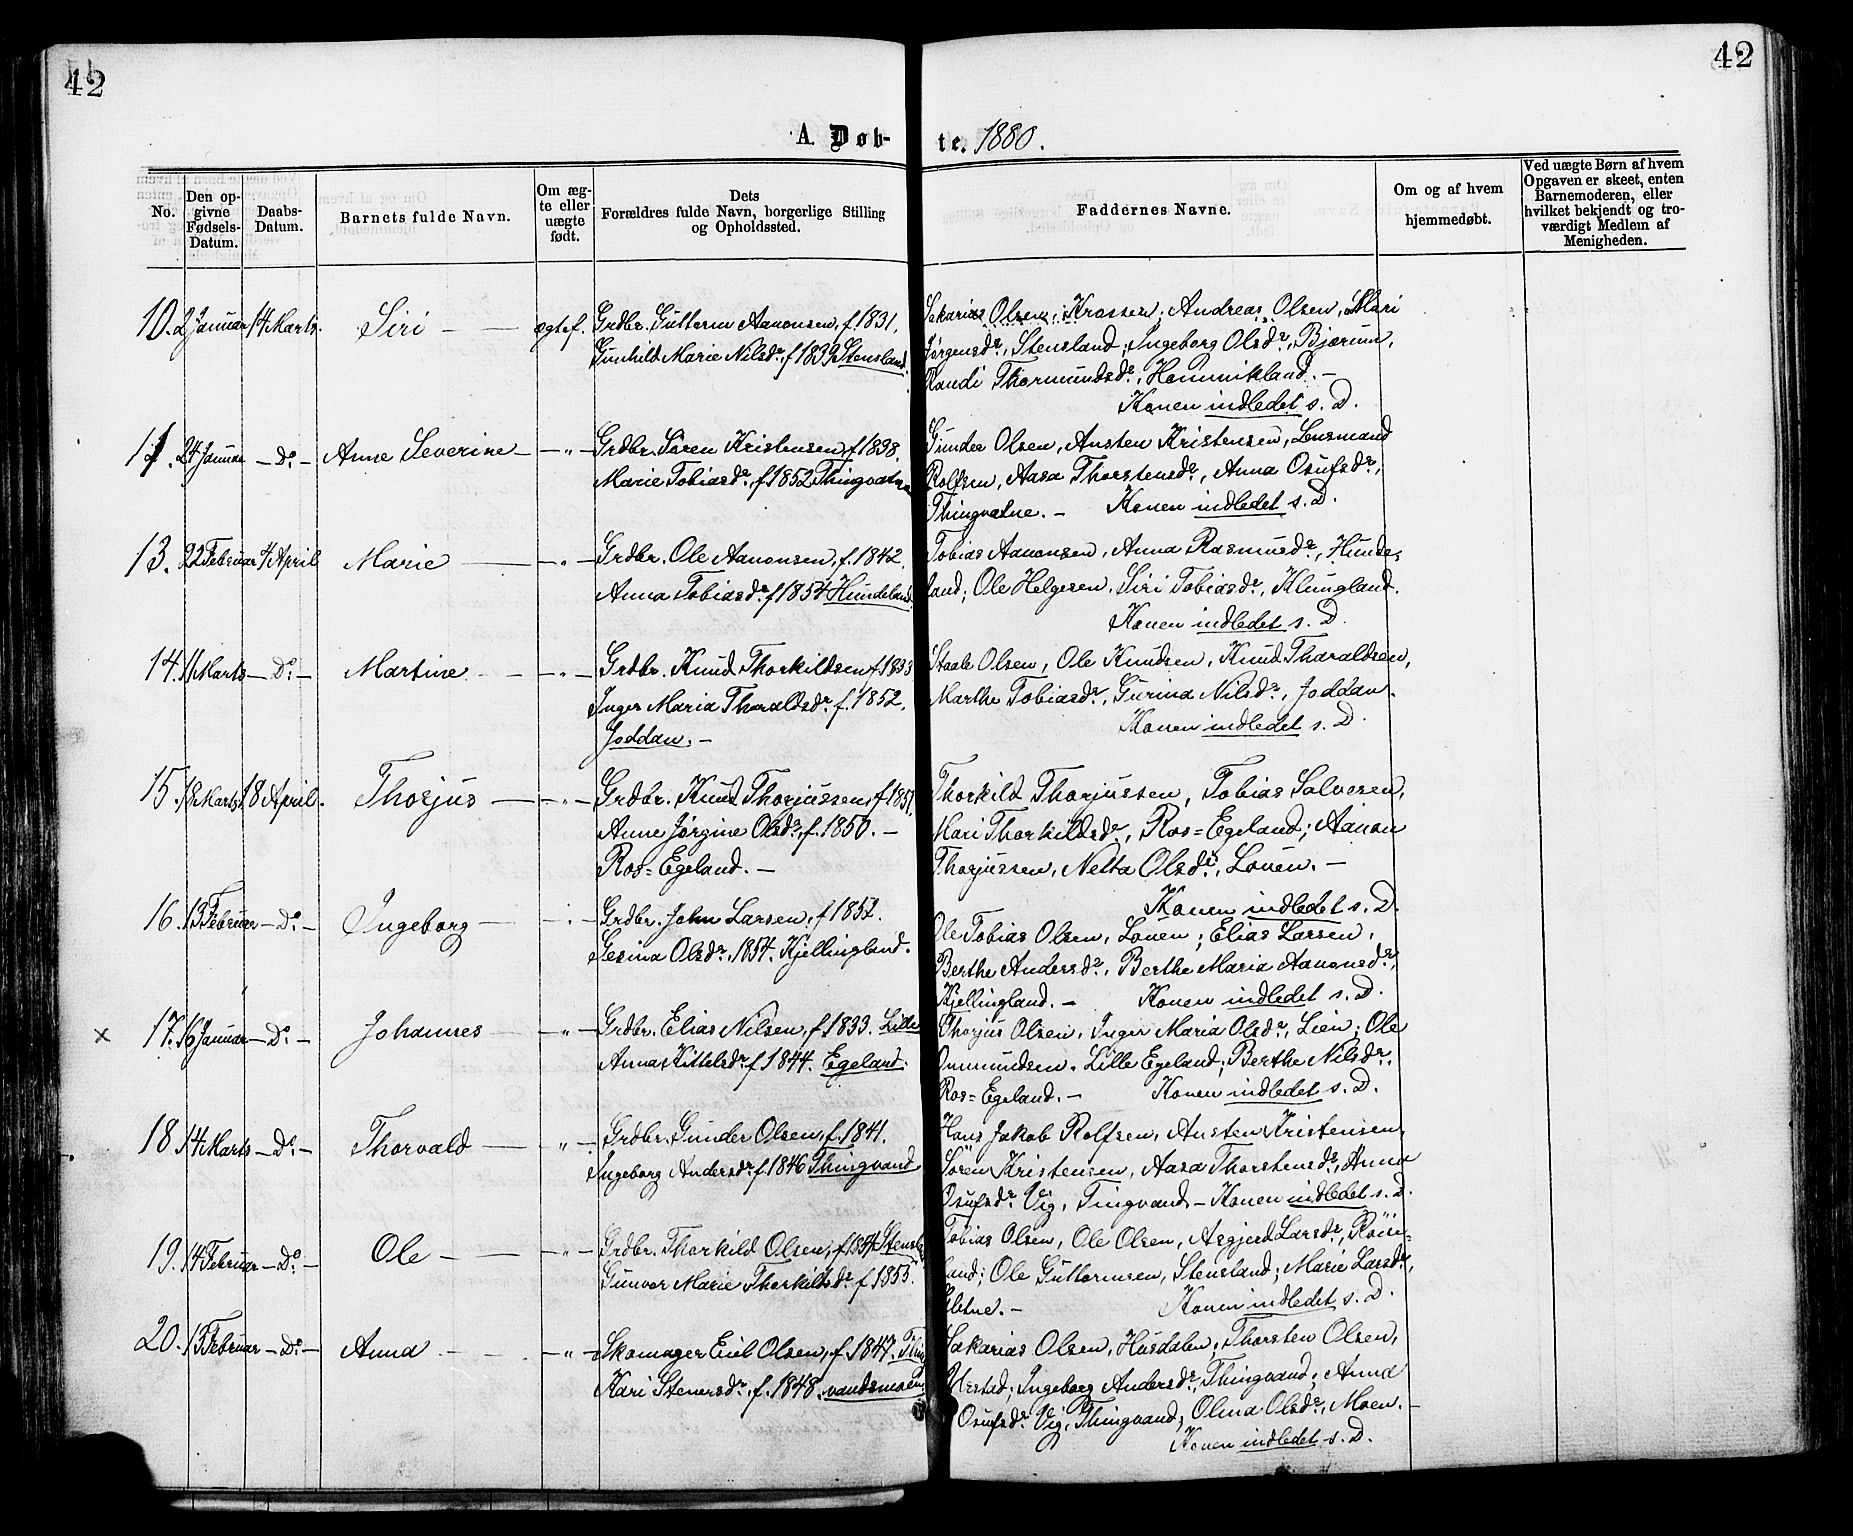 42
42
A. Døb-
te. 1880.
No.
Den op-
givne
Fødsels-
Datum.
Daabs-
Datum.
Barnets fulde Navn.
Om æg-
te eller
uægte
født.
Dets
Forældres fulde Navn, borgerlige Stilling
og Opholdssted.
Faddernes Navne.
Om og af hvem
hjemmedøbt.
Ved uægte Børn af hvem
Opgaven er skeet, enten
Barnemoderen, eller
hvilket bekjendt og tro-
værdigt Medlem af
Menigheden.
10. 2 Januar 14 Marts. Siri ægtef. Grdbr. Guttorm Aanonsen, f. 1831.
Gunhild Marie Nilsdr. f 1839 Stensland.
Sakarias Olsen, Krossen; Andreas Olsen, Mari
Jørgensdr., Stensland; Ingeborg Olsdr., Bjærum,
Randi Thormundsdr., Hommikland. -
Konen indledet s. D.
11. 24 Januar - Do. - Anne Severine - " - Grdbr. Søren Kristensen, f 1838.
Marie Tobiasdr., f 1852 Thingvatne
Gunder Olsen, Austen Kristensen, Lensmand
Rolfsen, Aasa Thorstensdr., Anna Osufsdr.,
Thingvatne. - Konen indledet s. D.
13. 22 Februar 4 April Marie - " - Grdbr. Ole Aanonsen, f. 1842.
Anna Tobiasdr. f 1854 Hundeland.
Tobias Aanonsen, Anna Rasmusdr., Hunde-
land; Ole Helgesen, Siri Tobiasdr., Klungland.
Konen indledet s. D.
14. 11 Marts - Do. - Martine - " - Grdbr. Knud Thorkildsen f 1833
Inger Maria Tharaldsdr. f. 1852.
Joddan. -
Staale Olsen, Ole Knudsen, Knud Tharaldsen,
Marthe Tobiasdr., Gurina Nilsdr., Joddan.
Konen indledet s. D.
15. 18 Marts 18 April. Thorjus - " - Grdbr. Knud Thorjussen, f 1851,
Anne Jørgine Olsdr., f. 1850. -
Ros=Egeland. -
Thorkild Thorjussen, Tobias Salvesen,
Mari Thorkildsdr., Ros=Egeland; Aanon
Thorjussen, Netta Olsdr., Louen. -
Konen indledet s. D.
16. 13 Februar - Do. - Ingeborg - " - Grdbr. John Larsen, f 1852.
Gesina Olsdr., 1854. Kjellingland.
Ole Tobias Olsen, Louen; Elias Larsen,
Berthe Andersdr., Berthe Maria Aanonsdr.,
Kjellingland. - Konen indledet s. D.
× 17. 16 Januar - Do. - Johannes - " - Grdbr. Elias Nilsen, f. 1833. Lille
Anna Kittelsdr. f 1844. Egeland.
Thorjus Olsen, Inger Maria Olsdr., Lien; Ole
Ommundsen, Lille Egeland; Berthe Nilsdr.,
Ros=Egeland. - Konen indledet s. D.
18. 14 Marts - Do. - Thorvald - " - Grdbr. Gunder Olsen, f. 1841.
Ingeborg Andersdr. f. 1846 Thingvand
Hans Jakob Rolfsen, Austen Kristensen,
Sören Kristensen, Aasa Thorstensdr., Anna
Osufsdr. Vig, Tingvand. - Konen indledet s. D.
19. 14 Februar - Do. - Ole - " - Grdbr. Thorkild Olsen, f 1854 Stensland
Gunvor Marie Thorkildsdr. f 1855.
Tobias Olsen, Ole Olsen, Asgjerd Larsdr.,
land; Ole Guttormsen, Stensland; Marie Larsdr.,
Konen indledet s. D.
20. 15 Februar - Do. - Anna - " - Skomager Emil Olsen, f. 1847. Thing
Kari Stenersdr., f. 1848. vandsmoen
Sakarias Olsen, Husdalen; Thorsten Olsen,
Ingeborg Andersdr., Thingvand; Anna
Osufsdr. Vig, Thingvand; Olina Olsdr., Moen. -
Konen indledet s. D.